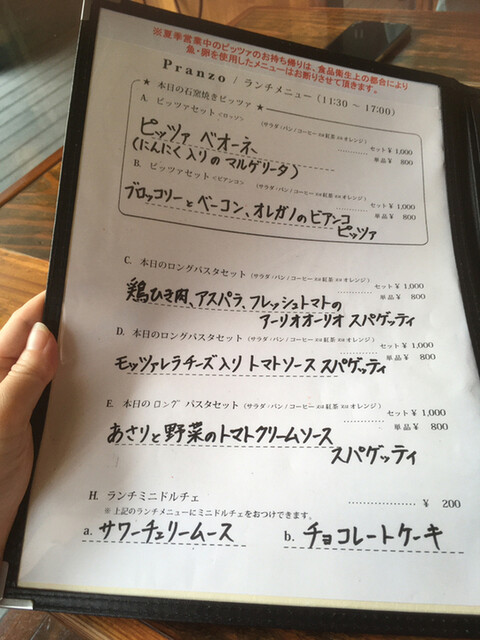 ※夏季営業中のピッツァのお持ち帰りは、食品衛生上の都合により
魚・卵を使用したメニューはお断りさせて頂きます。
Pranzo / ランチメニュー (11:30 ~ 17:00)
★ 本日の石窯焼きピッツァ ★
A. ピッツァセット<ロッソ> (サラダ・パン / コーヒー or 紅茶 or オレンジ)
セット¥ 1,000
ピッツァ ベオーネ 単品¥ 800
(にんにく入りの マルゲリータ)
B. ピッツァセット<ビアンコ> (サラダ・パン / コーヒー or 紅茶 or オレンジ)
セット¥ 1,000
ブロッコリーとベーコン、オレガノのビアンコ 単品¥ 800
ピッツァ
C. 本日のロングパスタセット (サラダ・パン / コーヒー or 紅茶 or オレンジ)
セット¥ 1,000
鶏ひき肉、アスパラ、フレッシュトマトの 単品¥ 800
アーリオオーリオ スパゲッティ
D. 本日のロングパスタセット (サラダ・パン / コーヒー or 紅茶 or オレンジ)
セット¥ 1,000
モッツァレラチーズ入り トマトソース スパゲッティ 単品¥ 800
E. 本日の ロング パスタセット (サラダ・パン / コーヒー or 紅茶 or オレンジ)
セット¥ 1,000
あさりと野菜のトマトクリームソース 単品¥ 800
スパゲッティ
H. ランチミニドルチェ ¥ 200
※ 上記のランチメニューにミニドルチェをおつけできます。
a. サワーチェリームース b. チョコレートケーキ